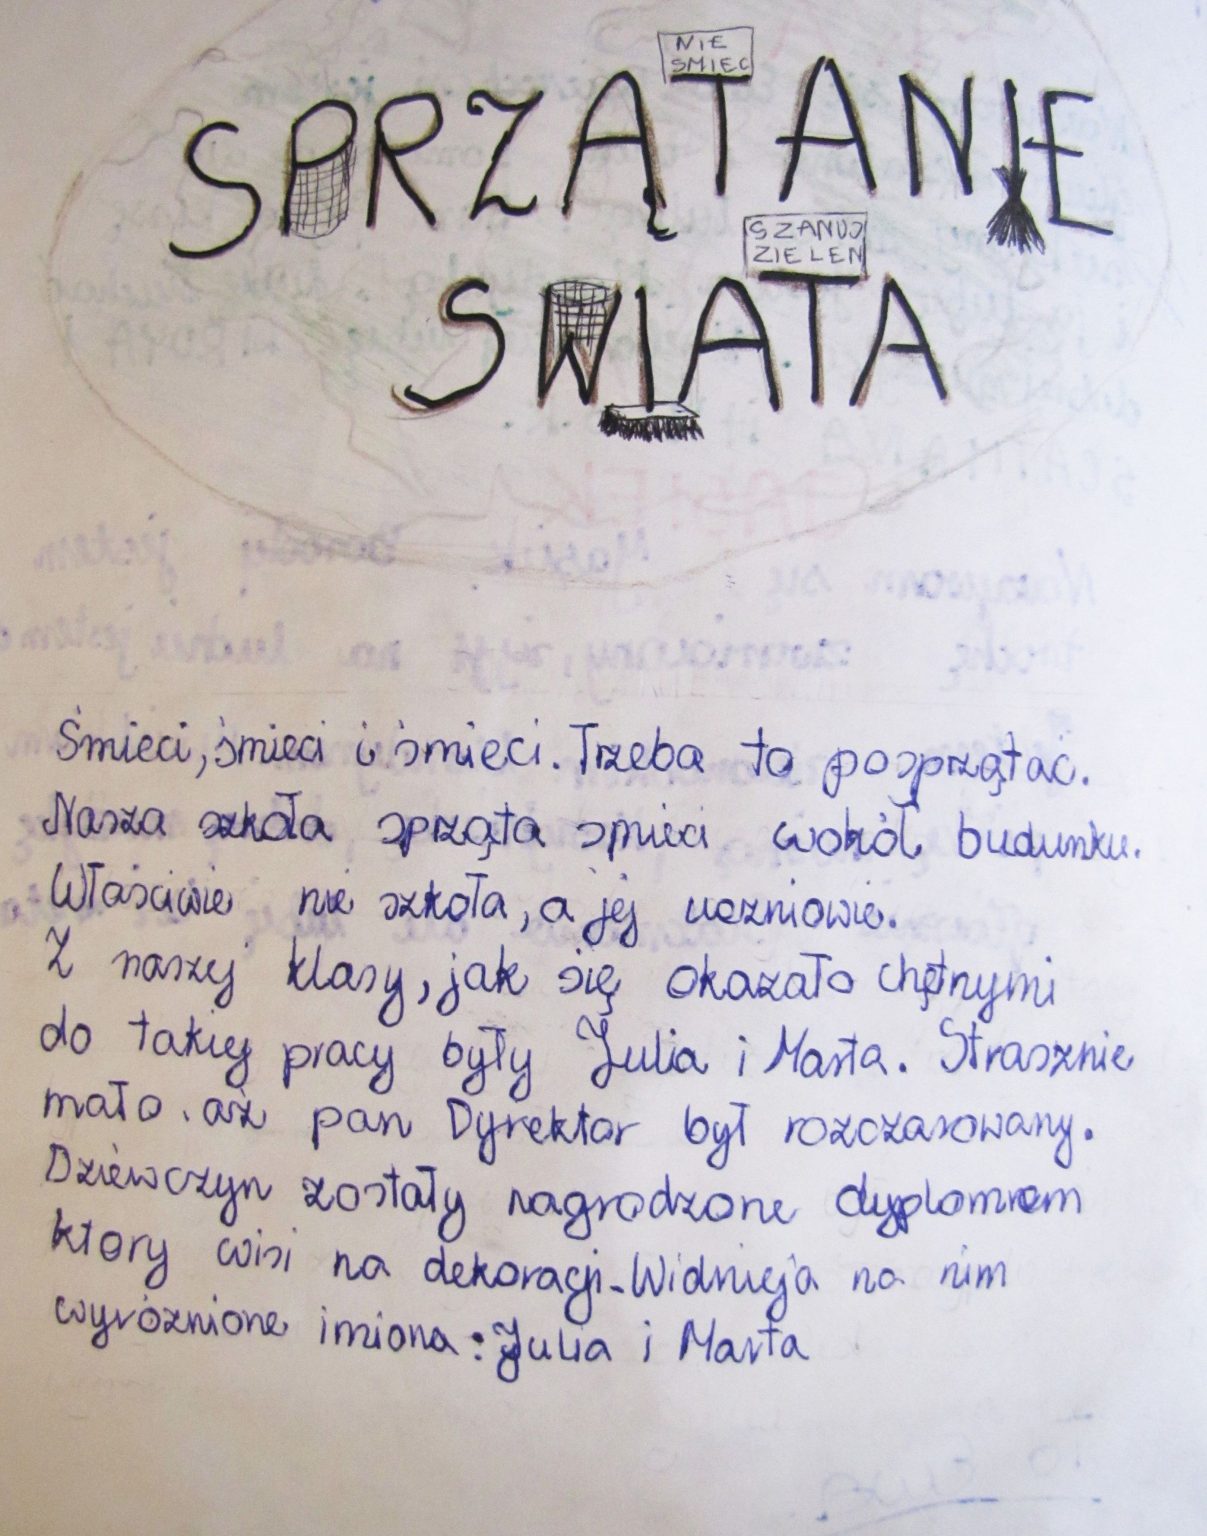 NIE
SMIEC
SPRZĄTANIE
SZANUJ
ZIELEN
SWIATA
Śmieci, śmieci i śmieci. Trzeba to posprzątać.
Nasza szkoła sprząta śmieci wokół budunku.
Właściwie nie szkoła, a jej uczniowie.
Z naszej klasy, jak się okazało chętnymi
do takiej pracy były Julia i Marta. Strasznie
mało. aż pan Dyrektor był rozczarowany.
Dziewczyn zostały nagrodzone dyplomem
ktory wisi na dekoracji. Widnieja na nim
wyróżnione imiona: Julia i Marta